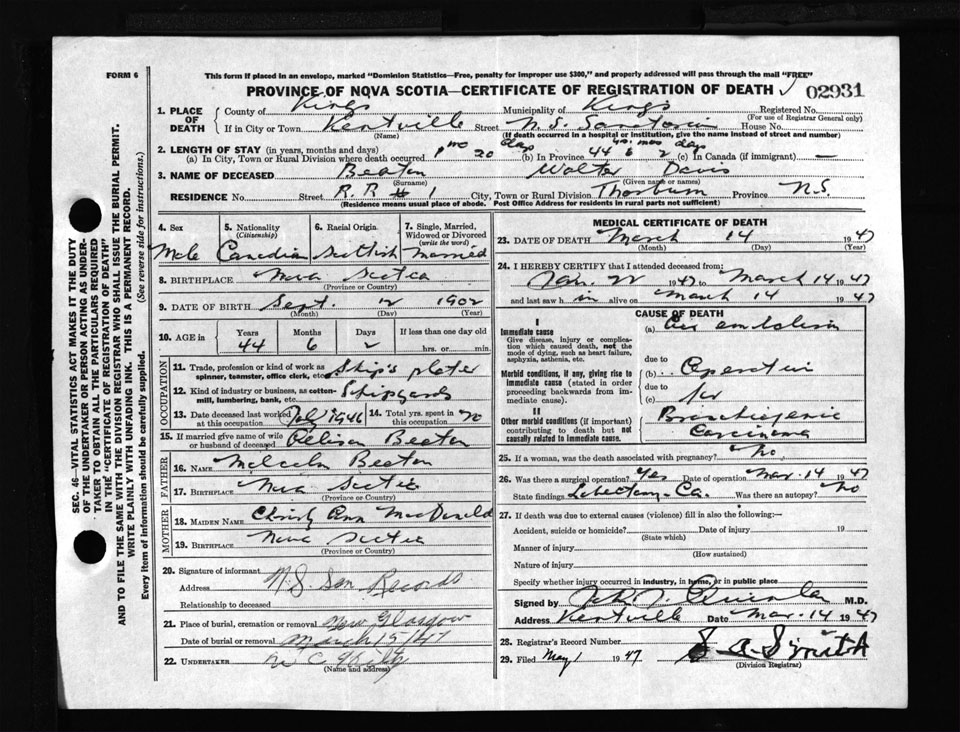 FORM 6
This form if placed in an envelope, marked "Dominion Statistics—Free, penalty for improper use $300," and properly addressed will pass through the mail "FREE"
PROVINCE OF NOVA SCOTIA—CERTIFICATE OF REGISTRATION OF DEATH 02931
1. PLACE OF DEATH County of Kings Municipality of Kings Registered No.
(For use of Registrar General only)
If in City or Town Kentville Street N.S. Sanatorium House No.
(Name) (If death occurred in a hospital or institution, give the name instead of street and number)
2. LENGTH OF STAY (in years, months and days) yrs. mos. days
(a) In City, Town or Rural Division where death occurred 1 mo 20 days (b) In Province 44 6 2 (c) In Canada (if immigrant) —
3. NAME OF DECEASED Beaton Walter Davis
(Surname) (Given name or names)
RESIDENCE No. Street R.R # 1 City, Town or Rural Division Thorburn Province N.S.
(Residence means usual place of abode. Post Office Address for residents in rural parts not sufficient)
4. Sex Male
5. Nationality (Citizenship) Canadian
6. Racial Origin Scottish
7. Single, Married, Widowed or Divorced (write the word) Married
8. BIRTHPLACE Nova Scotia
(Province or Country)
9. DATE OF BIRTH Sept. 12 1902
(Month) (Day) (Year)
10. AGE in Years 44 Months 6 Days 2 If less than one day old hrs. or min.
OCCUPATION
11. Trade, profession or kind of work as spinner, teamster, office clerk, etc. Ship's plater
12. Kind of industry or business, as cotton-mill, lumbering, bank, etc. Shipyards
13. Date deceased last worked at this occupation July 1946 14. Total yrs. spent in this occupation 20
15. If married give name of wife or husband of deceased Beaton
FATHER
16. NAME Malcolm Beaton
17. BIRTHPLACE Nova Scotia
(Province or Country)
MOTHER
18. MAIDEN NAME Christy Ann MacDonald
19. BIRTHPLACE Nova Scotia
(Province or Country)
20. Signature of informant N.S. San Records
Address
Relationship to deceased
21. Place of burial, cremation or removal New Glasgow
Date of burial or removal March 15/47
22. UNDERTAKER
(Name and address)
MEDICAL CERTIFICATE OF DEATH
23. DATE OF DEATH March 14 1947
(Month) (Day) (Year)
24. I HEREBY CERTIFY that I attended deceased from:
Jan. 22 1947 to March 14 1947
and last saw him alive on March 14 1947
CAUSE OF DEATH
I
Immediate cause (a) Air embolism
Give disease, injury or complication which caused death, not the mode of dying, such as heart failure, asphyxia, asthenia, etc.
due to
Morbid conditions, if any, giving rise to immediate cause (stated in order proceeding backwards from immediate cause).
(b) Operation
due to
(c) for
II
Other morbid conditions (if important) contributing to death but not causally related to immediate cause.
Bronchiogenic
Carcinoma
25. If a woman, was the death associated with pregnancy? No.
26. Was there a surgical operation? Yes Date of operation Mar. 14 1947
State findings Lobectomy - Ca. Was there an autopsy? No
27. If death was due to external causes (violence) fill in also the following:—
Accident, suicide or homicide? Date of injury 19
(State which)
Manner of injury
(How sustained)
Nature of injury
Specify whether injury occurred in industry, in home, or in public place
Signed by John J. Quinlan M.D.
Address Kentville Date Mar. 14 1947
28. Registrar's Record Number
29. Filed May 1 1947 S A Smith
(Division Registrar)
SEC. 46—VITAL STATISTICS ACT MAKES IT THE DUTY
OF THE UNDERTAKER OR PERSON ACTING AS UNDERTAKER TO OBTAIN ALL THE PARTICULARS REQUIRED
IN THE "CERTIFICATE OF REGISTRATION OF DEATH"
AND TO FILE THE SAME WITH THE DIVISION REGISTRAR WHO SHALL ISSUE THE BURIAL PERMIT.
WRITE PLAINLY WITH UNFADING INK. THIS IS A PERMANENT RECORD.
Every item of information should be carefully supplied. (See reverse side for instructions.)